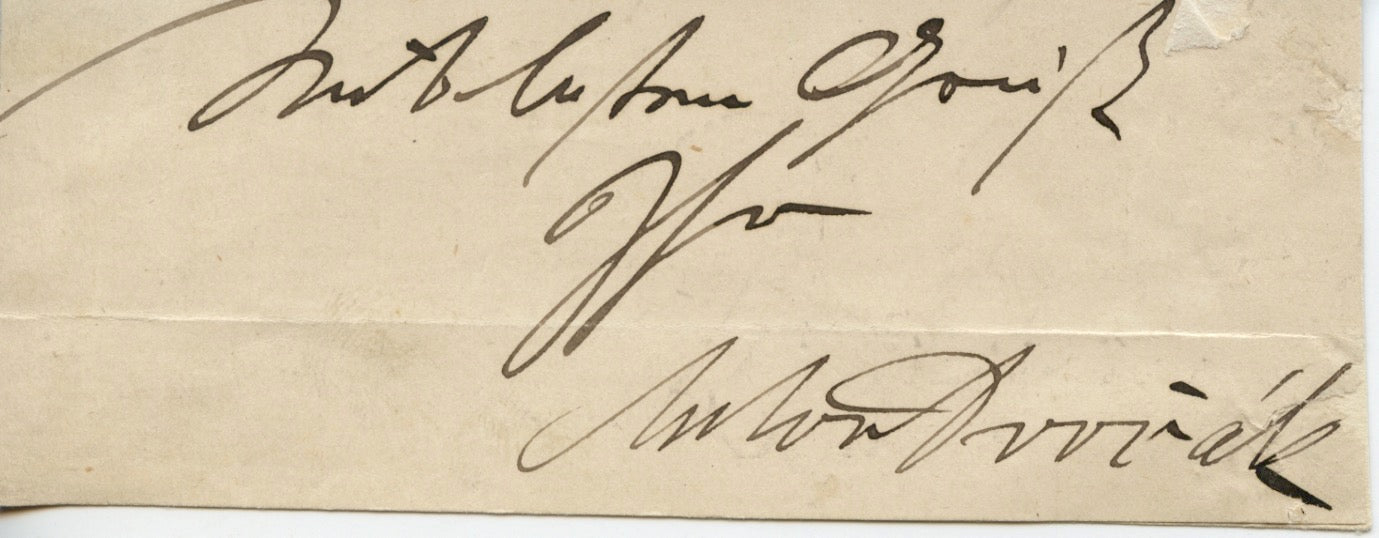 Mit bestem Gruß
Ihr
Anton Dvořák